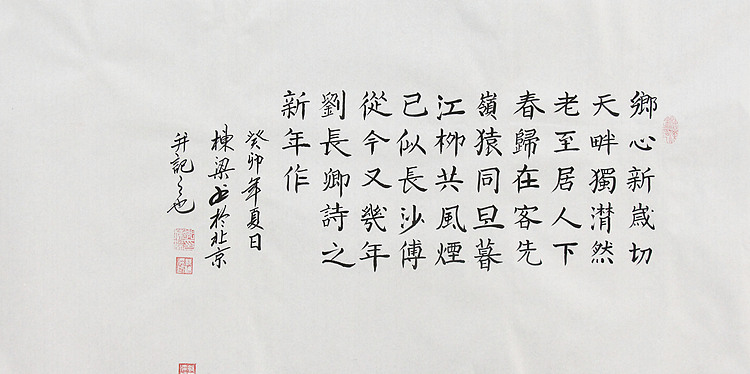 鄉心新歲切
天畔獨潸然
老至居人下
春歸在客先
嶺猿同旦暮
江柳共風煙
已似長沙傅
從今又幾年
劉長卿詩之
新年作
癸卯年夏日
棟梁书於北京
并記之也